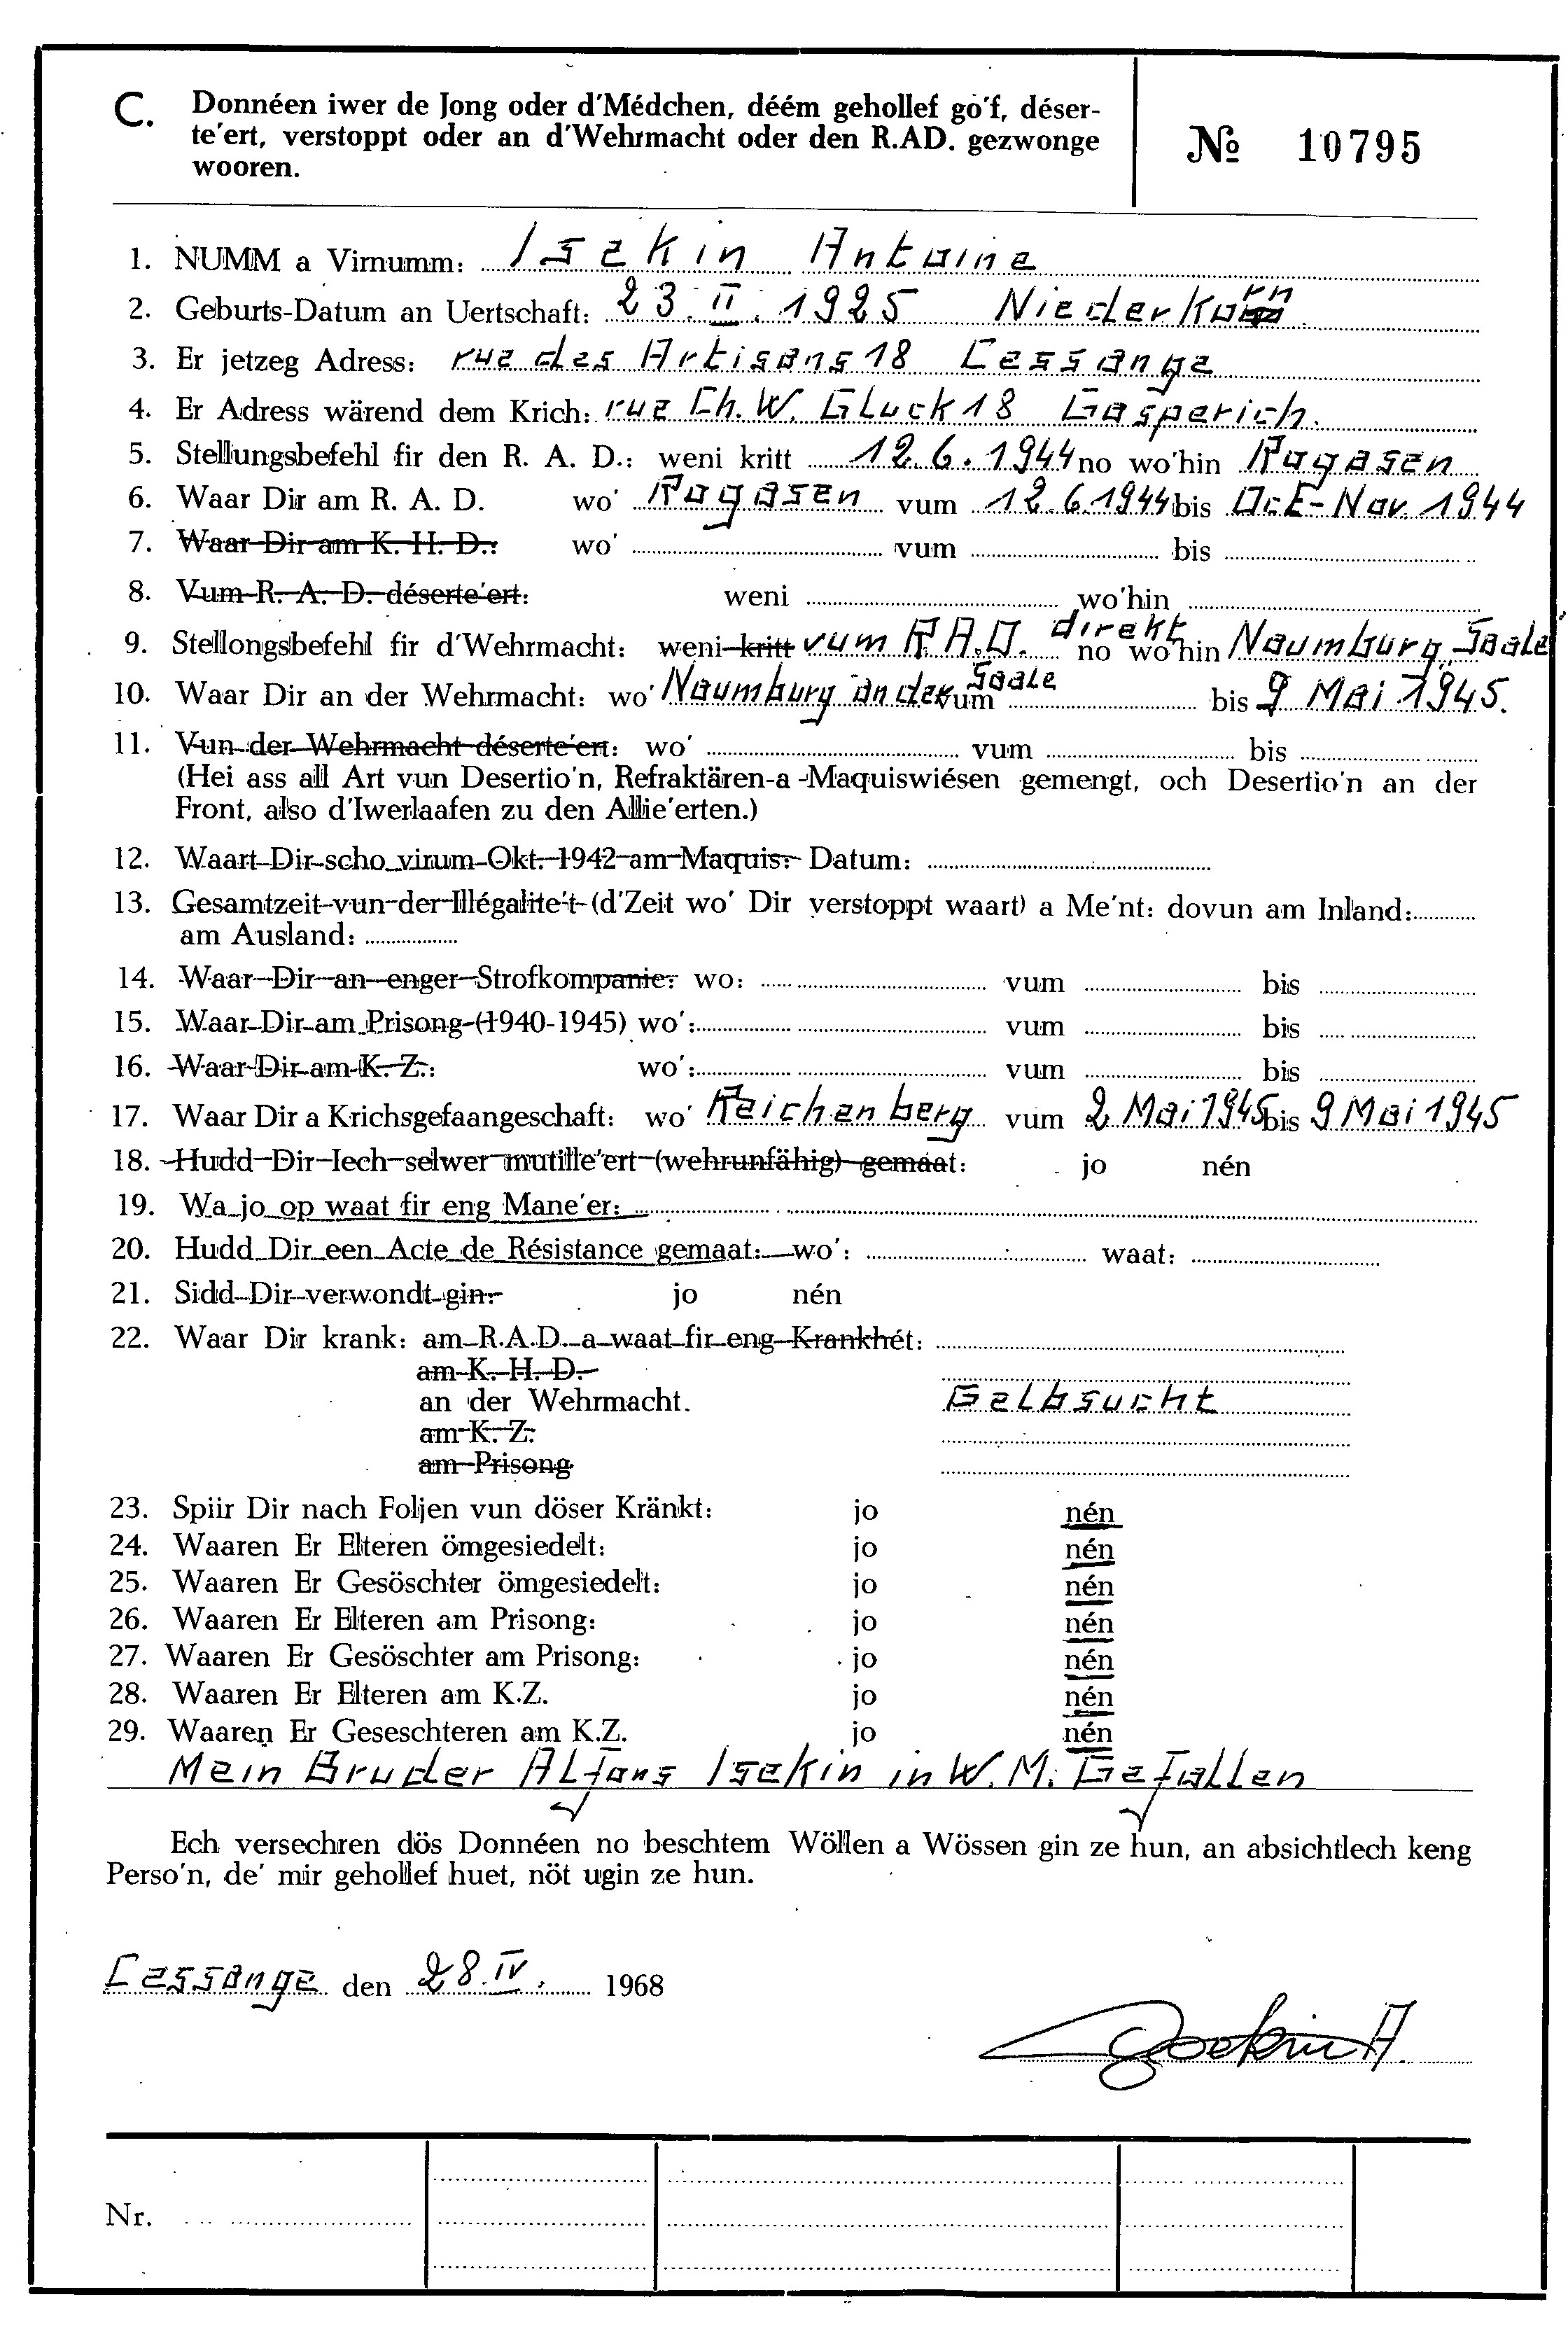 C. Donnéen iwer de Jong oder d'Médchen, déém gehollef go'f, déser-
te'ert, verstoppt oder an d'Wehrmacht oder den R.AD. gezwonge
wooren.
№ 10795
1. NUMM a Virnumm: Isekin Antoine
2. Geburts-Datum an Uertschaft: 23. II. 1925 Niederkorn
3. Er jetzeg Adress: rue des Artisans 18 Cessange
4. Er Adress wärend dem Krich: rue Ch. W. Gluck 18 Gasperich.
5. Stellungsbefehl fir den R. A. D.: weni kritt 12.6.1944 no wo'hin Rogasen
6. Waar Dir am R. A. D. wo' Rogasen vum 12.6.1944 bis Oct-Nov. 1944
7. Waar Dir am K. H. D.: wo' vum bis
8. Vum R. A. D. déserte'ert: weni wo'hin
9. Stellongsbefehl fir d'Wehrmacht: weni kritt vum R.A.D. direkt no wo'hin Naumburg, Saale
10. Waar Dir an der Wehrmacht: wo' Naumburg an der Saale vum bis 9 Mai 1945.
11. Vun der Wehrmacht déserte'ert: wo' vum bis
(Hei ass all Art vun Desertio'n, Refraktären-a -Maquiswiésen gemengt, och Desertio'n an der
Front, also d'Iwerlaafen zu den Allie'erten.)
12. Waart Dir scho virum Okt. 1942 am Maquis: Datum:
13. Gesamtzeit vun der Illégalite't (d'Zeit wo' Dir verstoppt waart) a Me'nt: dovun am Inland:
am Ausland:
14. Waar Dir an enger Strofkompanie: wo: vum bis
15. Waar Dir am Prisong (1940-1945) wo': vum bis
16. Waar Dir am K. Z.: wo': vum bis
17. Waar Dir a Krichsgefaangeschaft: wo' Reichenberg vum 2 Mai 1945 bis 9 Mai 1945
18. Hudd Dir Iech selwer mutille'ert (wehrunfähig) gemaat: jo nén
19. Wa jo op waat fir eng Mane'er:
20. Hudd Dir een Acte de Résistance gemaat: wo': waat:
21. Sidd Dir verwondt gin: jo nén
22. Waar Dir krank: am R.A.D. a waat fir eng Krankhét:
am K. H. D.
an der Wehrmacht. Gelbsucht
am K. Z.
am Prisong
23. Spiir Dir nach Foljen vun döser Kränkt: jo nén
24. Waaren Er Elteren ömgesiedelt: jo nén
25. Waaren Er Gesöschter ömgesiedelt: jo nén
26. Waaren Er Elteren am Prisong: jo nén
27. Waaren Er Gesöschter am Prisong: jo nén
28. Waaren Er Elteren am K.Z. jo nén
29. Waaren Er Geseschteren am K.Z. jo nén
Mein Bruder Alfons Isekin in W. M. Gefallen
Ech versechren dös Donnéen no beschtem Wöllen a Wössen gin ze hun, an absichtlech keng
Perso'n, de' mir gehollef huet, nöt ugin ze hun.
Cessange den 28. IV. 1968
Isekin A.
Nr.